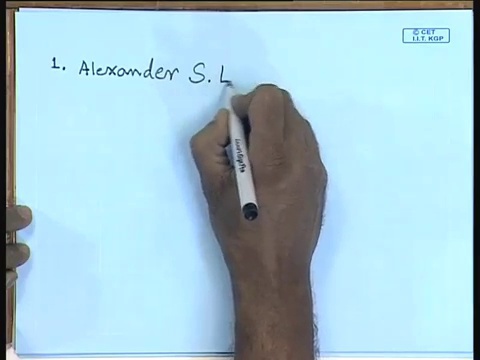 © CET
I.I.T. KGP
1. Alexander S. L